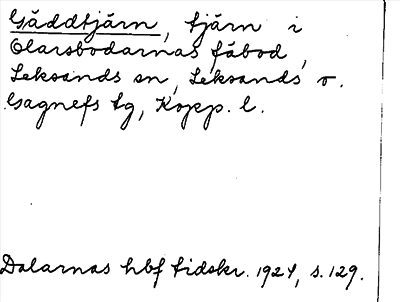 Gäddtjärn, tjärn i
Olarsbodarnas fäbod,
Leksands sn, Leksands o.
Gagnefs tg, Kopp. l.
Dalarnas hbf tidskr. 1924, s. 129.